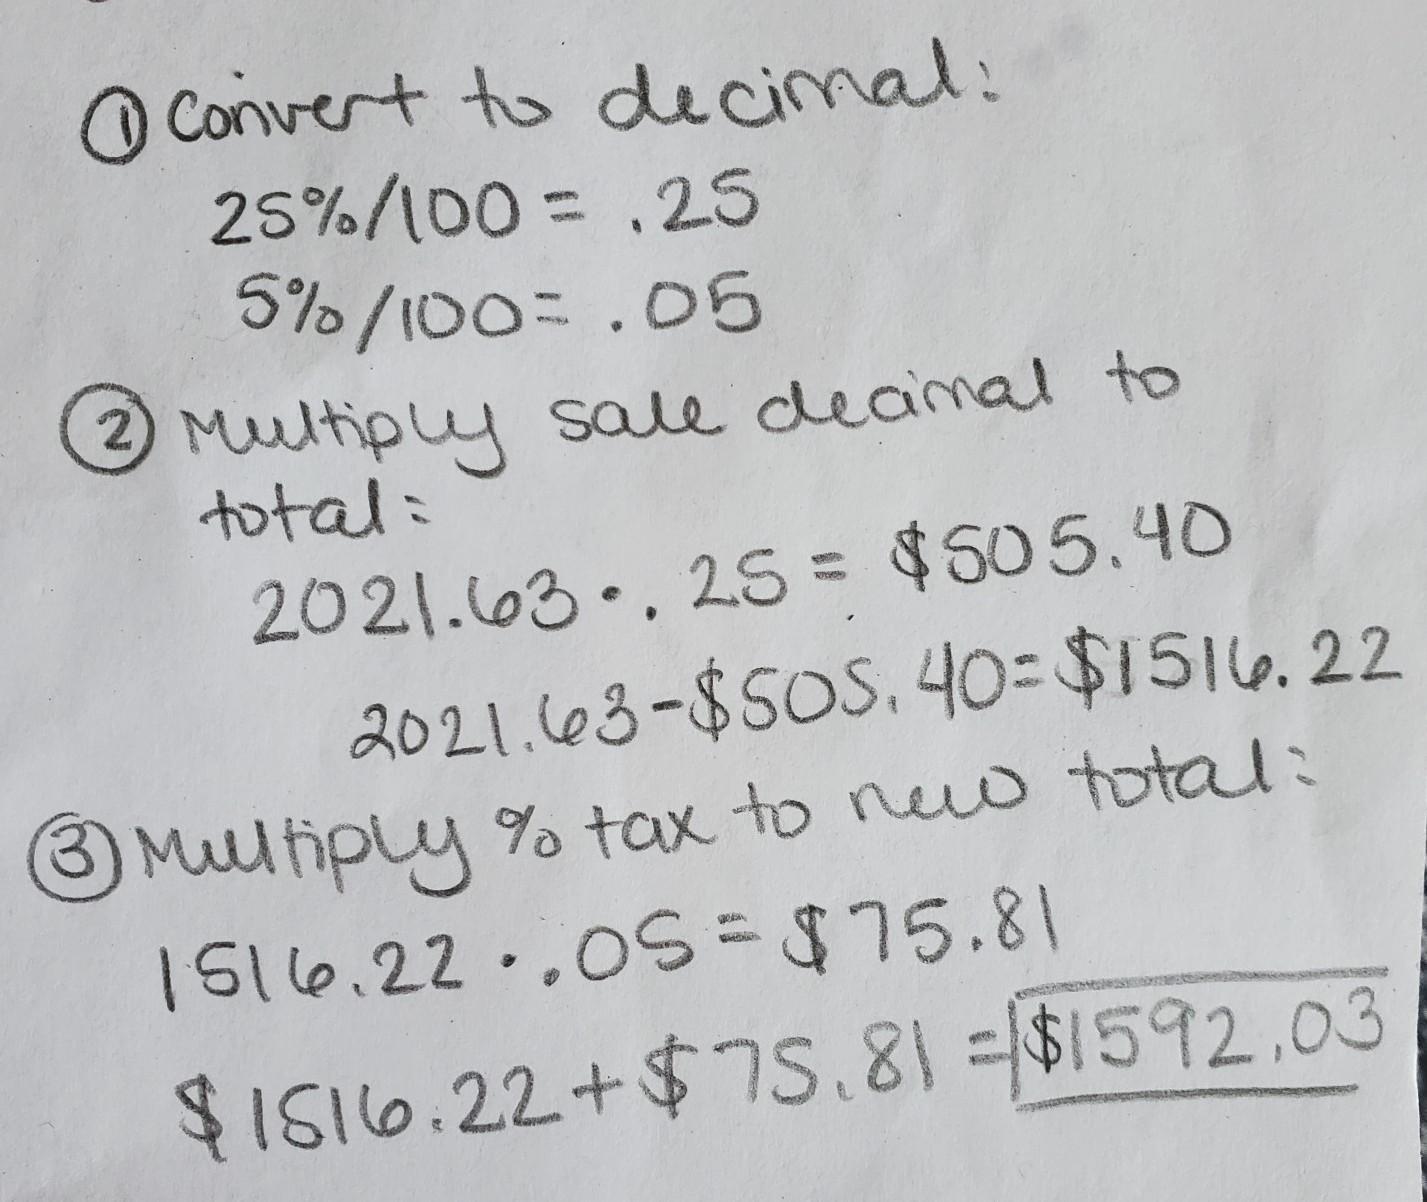 ① Convert to decimal:
25%/100 = .25
5%/100 = .05
② Multiply sale decimal to
total:
2021.63 · .25 = $505.40
2021.63-$505.40=$1516.22
③ Multiply % tax to new total:
1516.22 · .05 = $75.81
$1516.22+$75.81 = $1592.03